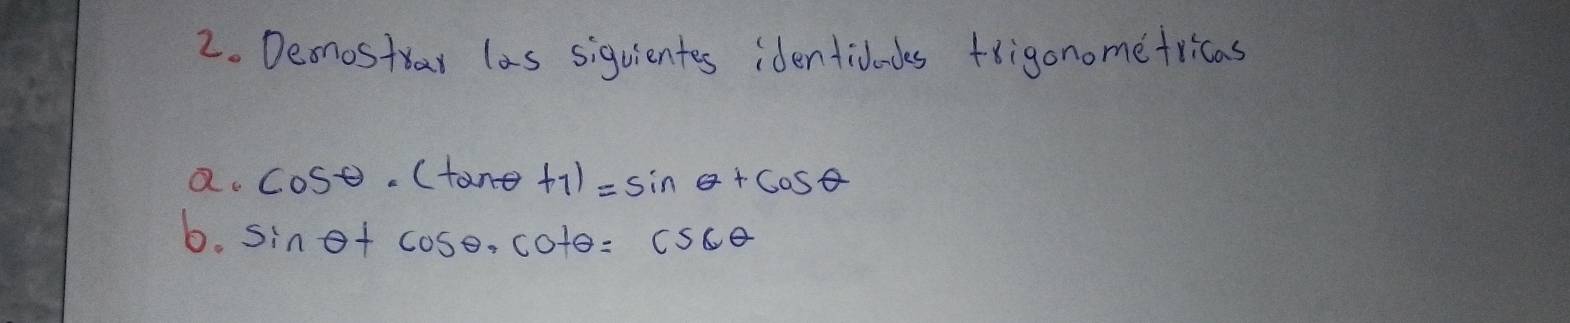 2. Demostrar las siguientes identidades trigonométricas
a. cosθ . (tanθ +1) = sin θ + cosθ
b. sin θ + cosθ . cotθ = cscθ